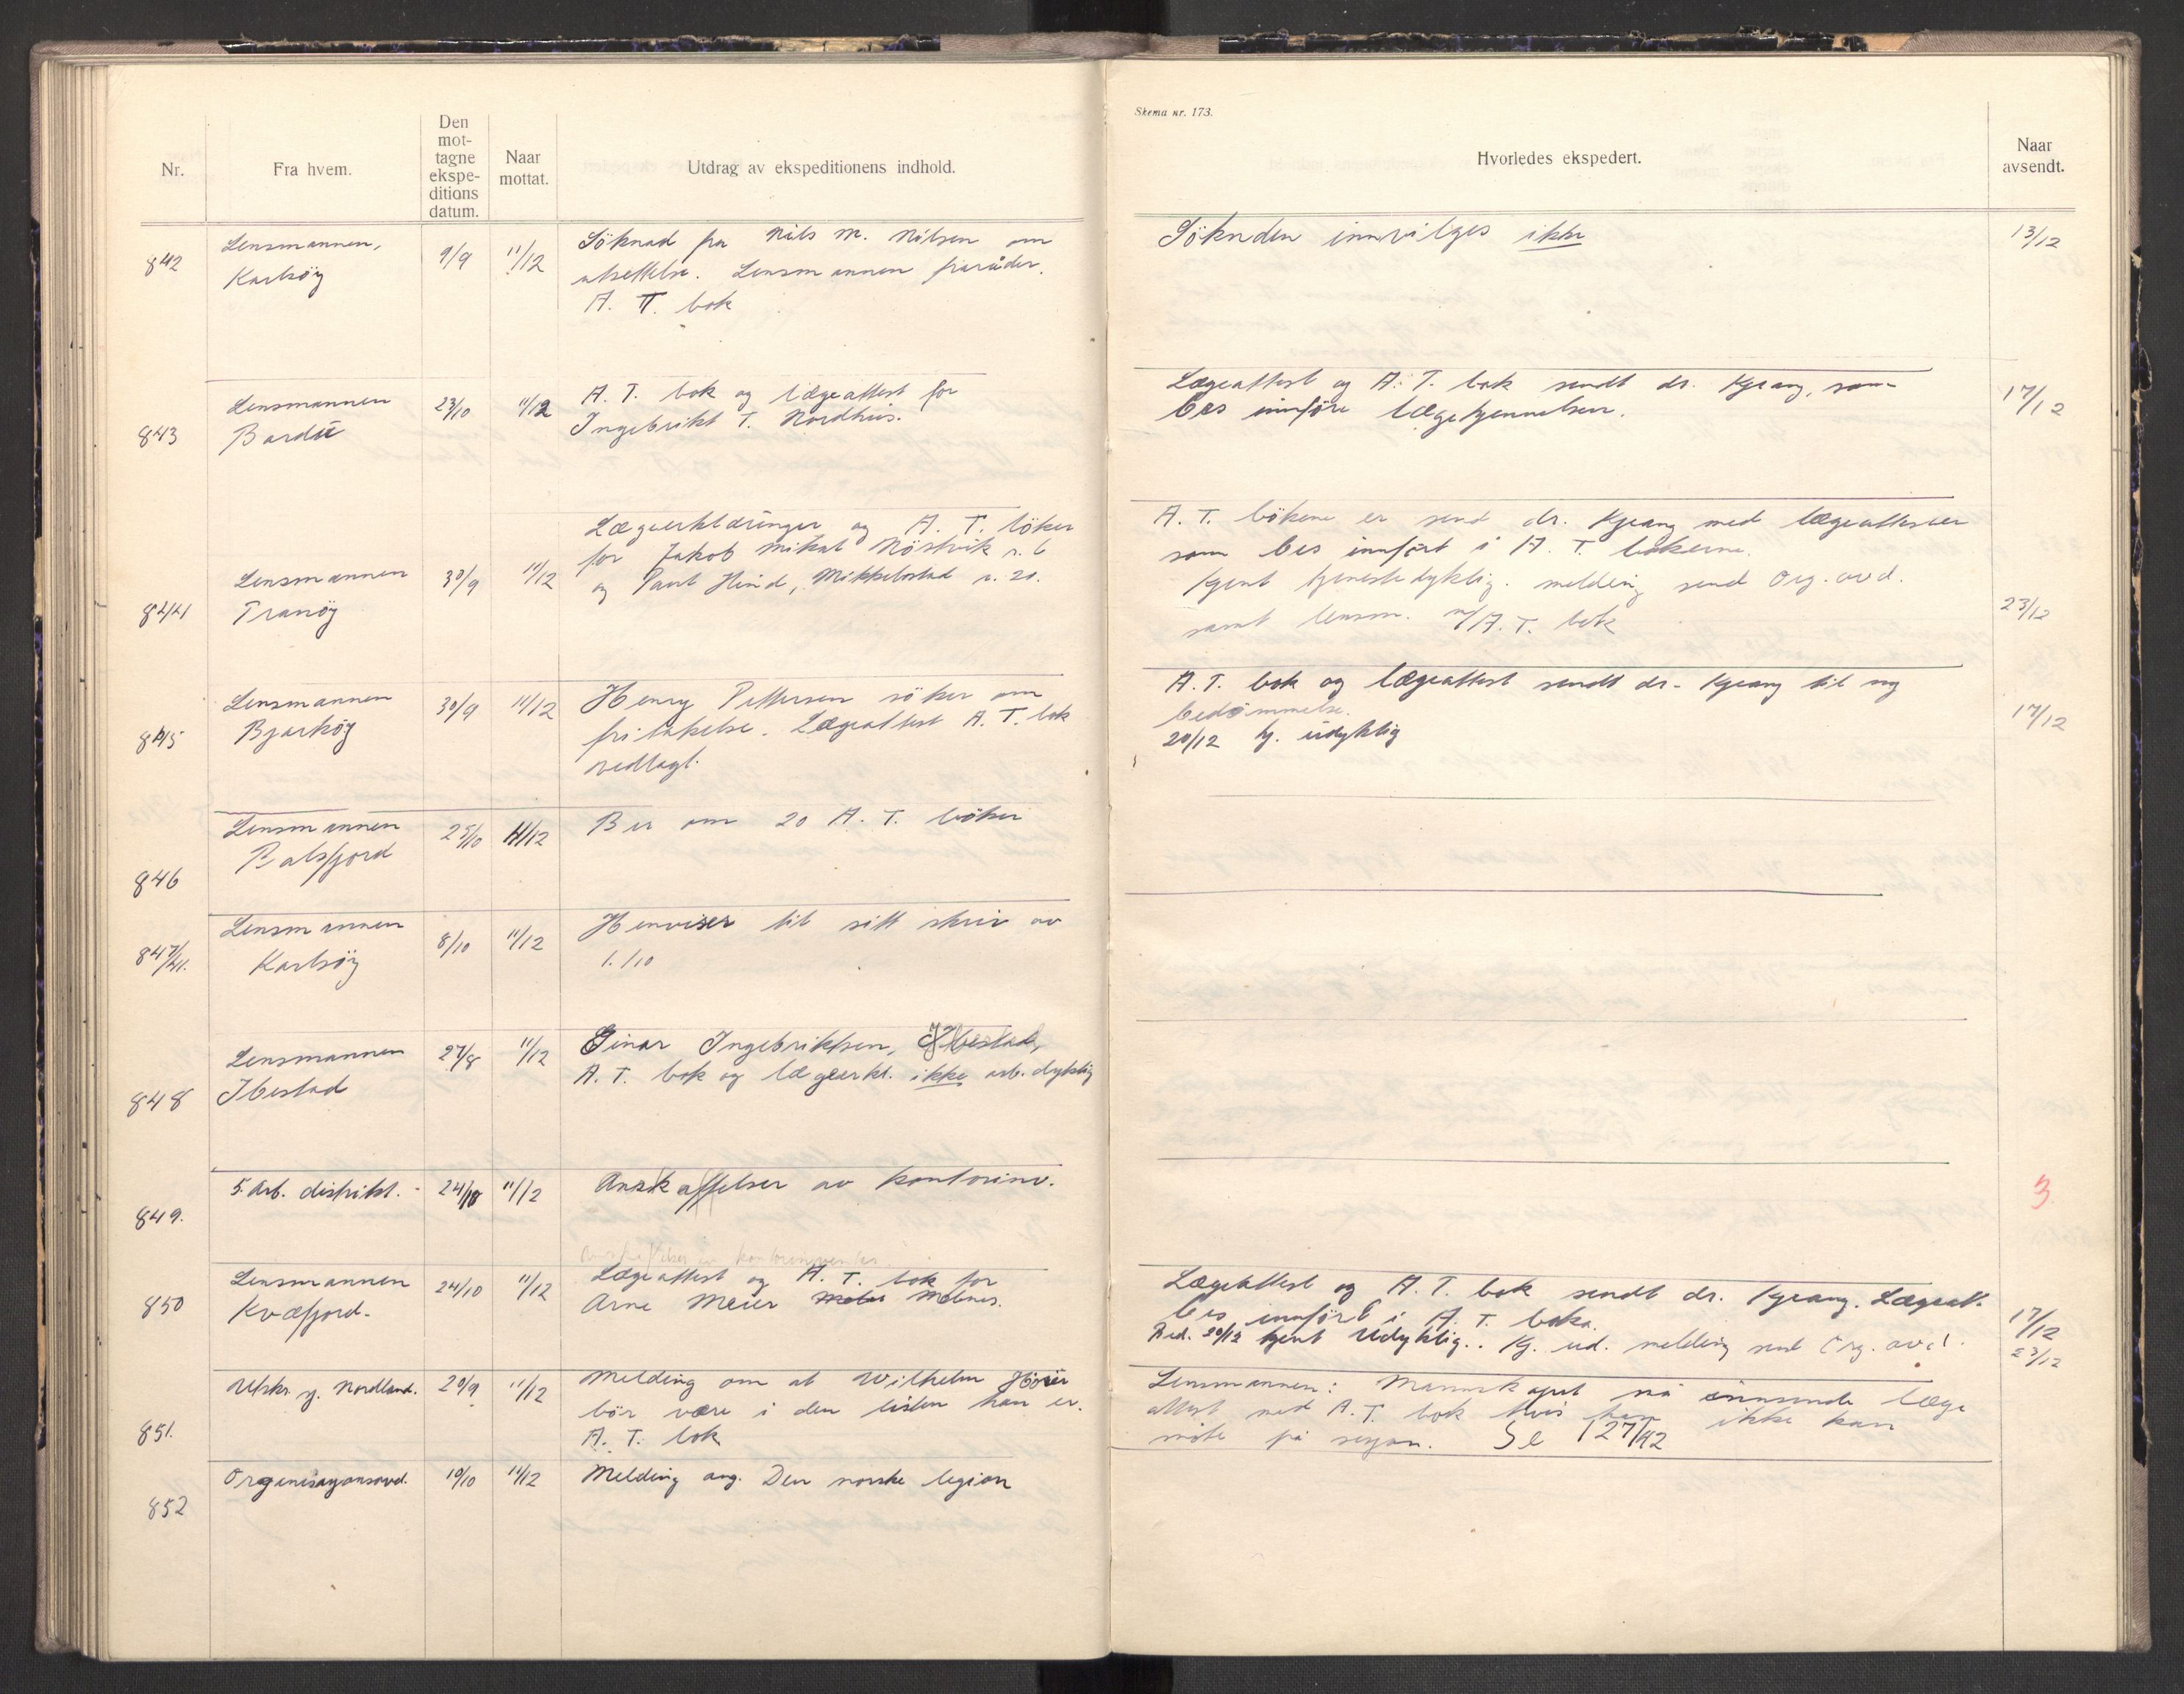 Nr.
Fra hvem.
Den
mot-
tagne
ekspe-
ditions
datum.
Naar
mottat.
Utdrag av ekspeditionens indhold.
Skema nr. 173.
Hvorledes ekspedert.
Naar
avsendt.
842
Lensmannen,
Karlsöy
9/9
11/12
Söknad fra Nils M. Nilsen om
utsettelse. Lensmannen fraråder.
A. T. bok
Söknden innvilges ikke
13/12
843
Lensmannen
Bardu
23/10
11/12
A. T. bok og lægeattest for
Ingebrikt T. Nordhus.
Lægeattest og A. T. bok sendt dr. Kjeang, som
bes innföre lægekjennelsen.
17/12
844
Lensmannen
Tranöy
30/9
11/12
Lægeerklæringer og A. T. böker
for Jakob Mikal Nöstvik r. 6
og Paul Hind, Mikkelbostad r. 20.
A. T. bökene er send dr. Kjeang med lægeattester
som bes innfört i A. T. bökerne.
Kjent tjenestedyktig. melding send Org. avd.
samt lensm. m/A. T. bok
23/12
845
Lensmannen
Bjarköy
30/9
11/12
Henry Pettersen söker om
fritakelse. Lægeattest A. T. bok
vedlagt.
A. T. bok og lægeattest sendt dr. Kjeang til ny
bedömmelse.
20/12 kj. udyktig
17/12
846
Lensmannen
Balsfjord
25/10
11/12
Ber om 20 A. T. böker
847/41.
Lensmannen
Karlsöy
8/10
11/12
Henviser til sitt skriv av
1./10
848
Lensmannen
Ibestad
27/8
11/12
Einar Ingebriktsen, Ibestad,
A. T. bok og lægeerkl. ikke arb. dyktig
849.
5. Arb. distrikt.
24/10
11/12
Anskaffelser av kontorinv.
3
850
Lensmannen
Kvæfjord.
24/10
11/12
Anskaffelser av kontorinventar
Lægeattest og A. T. bok for
Arne Meier Melnes.
Lægeattest og A. T. bok sendt dr. Kjeang. Lægeatt.
bes innfört i A. T. boka.
Bed. 20/12 kjent udyktig. Kj. ud. melding send Org. avd.
17/12
23/12
851.
Utskr. sj. Nordland.
20/9
11/12
Melding om at Wilhelm
bör være i den listen han er.
A. T. bok
Lensmannen: Mannskapet må innsende læge
attest med A. T. bok hvis han ikke kan
möte på sesjon. Se 127/42
852
Organisasjonsavd.
10/10
11/12
Melding ang. Den norske legion